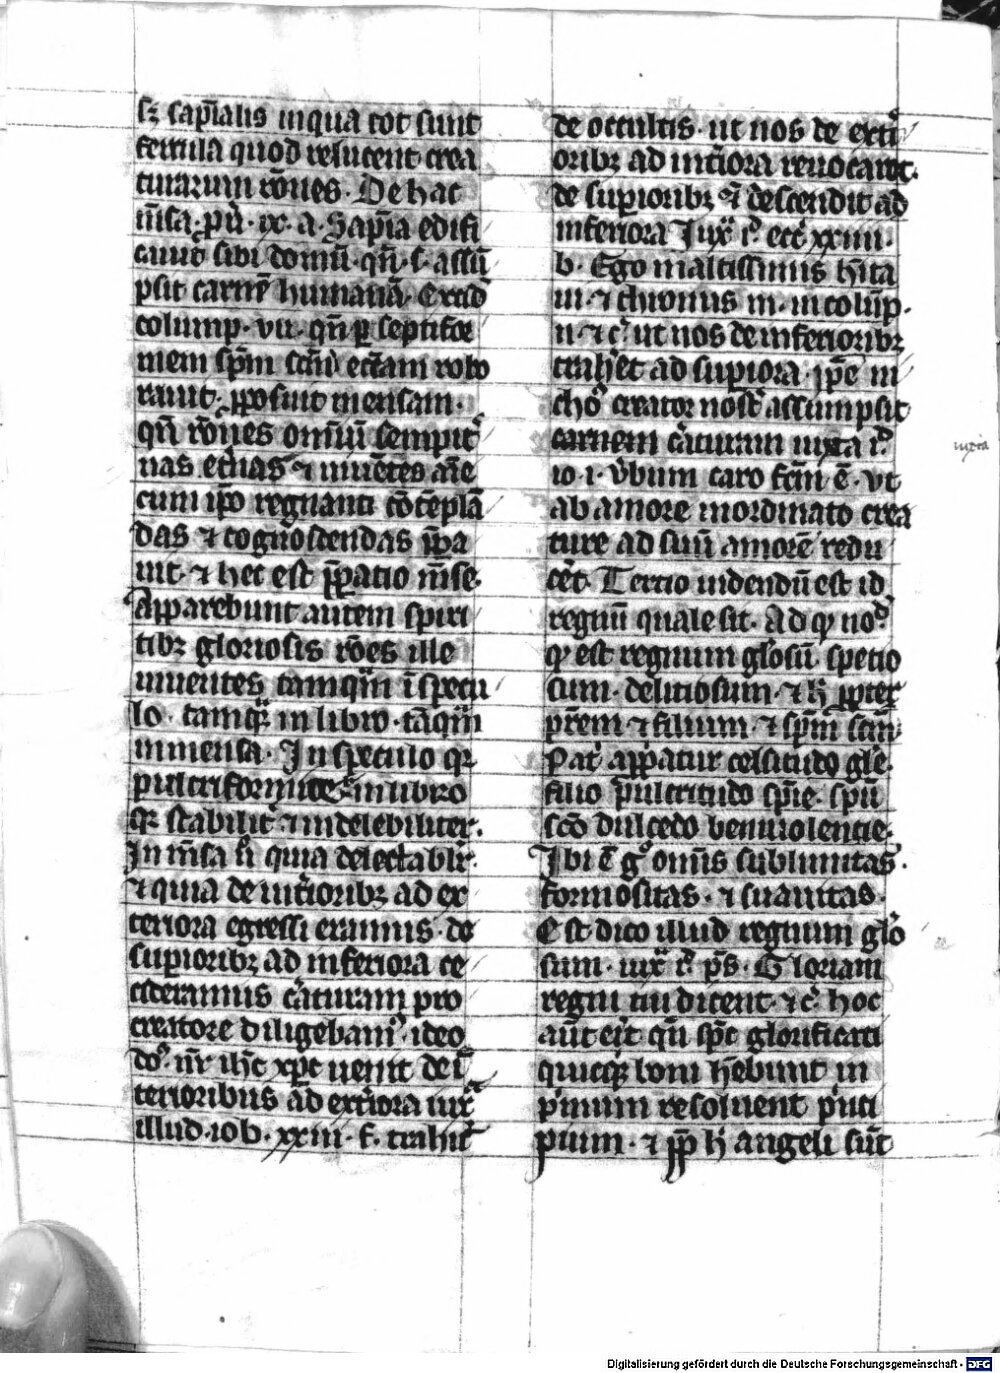 sꝫ sapīalis in qua tot sunt
fercula quod relucent crea
turarum rōnes. De hac
m̄sa. pu̇. ix. a. Sapīa edifi
cauit sibi domū. qn̄. s. assū
psit carnē humanā. Excid̄
colump. vii. qn̄ ꝑ septifor
mem spm̄ scm̄ eccām robo
rauit. ꝓposuit mensam.
qn̄ rōnes om̄iū sempit͛
nas et͛nas ⁊ inuētes aīe
cum ip̄o regnanti cōtēplā
das ⁊ cognoscendas p̄pa
uit. ⁊ hec est p̄paratio m̄se.
Apparebunt autem spiri
tibꝫ gloriosis rōes ille
uiuentes tamqm̄ ī specu
lo. tamqm̄ in libro. tāqm̄
in mensa. In speculo qꝛ
pulcriformit͛ in libro
qꝛ stabilit͛ ⁊ indelebiliter.
In m̄sa ū quia delectabilr͛.
⁊ quia de int͛ioribꝫ ad ex
teriora egressi eramus. de
supioribꝫ ad inferiora ce
cideramus c͛aturam pro
creatore diligebam⁹. ideo
do⁹. nr̄ ih̄c xp̄c uenit de ī
terioribus ad ext͛iora iux͛
illud. iob. xxiii. f. trahit
de occultis. ut nos de ext͛i
oribꝫ ad int͛iora reuocaret.
de supioribꝫ ⁊ descendit ad
inferiora Iux͛ i͛. ecc͛ xxiiii.
b. Ego in altissimis h͛ita
ui. ⁊ thronus m. in colūp.
n ⁊ c͛. ut nos de inferioribꝫ
trah͛et ad supiora. ip̄e in
cho͛ creator nost͛ assumpsit
carnem c͛aturam iuxta i͛d
io. i. v͛bum caro fcm̄ ē. vt
ab amore inordinato crea
ture ad suū amorē redu
c͛et. Tercio uidendū est id
regnū quale sit. Ad qͥ no͛d
qͥ est regnum glosū. specio
sum. delitiosum. ⁊ h̄ ꝓpter
pr̄em ⁊ filium. ⁊ spm̄ scm̄.
Pat͛ apparatur celsitudo glē.
filio pulcritudo spēie. spū
scō dulcedo beniuolencie.
Ibi ē g͛ omīs sublimitas.
formositas. ⁊ suauitas.
Est dico illud regnum glo
sum. iux͛ i͛. p̄s. Gloriam
regni tui dicent. ⁊ c͛. hoc
aūt er͛it qn̄ sp̄c glorificati
quicqͥ boni h͛ebunt in
p͛mum resoluent p͛nci
pium. ⁊ ꝓp̄ h̄ angeli sūt
iuxta
Digitalisierung gefördert durch die Deutsche Forschungsgemeinschaft - DFG